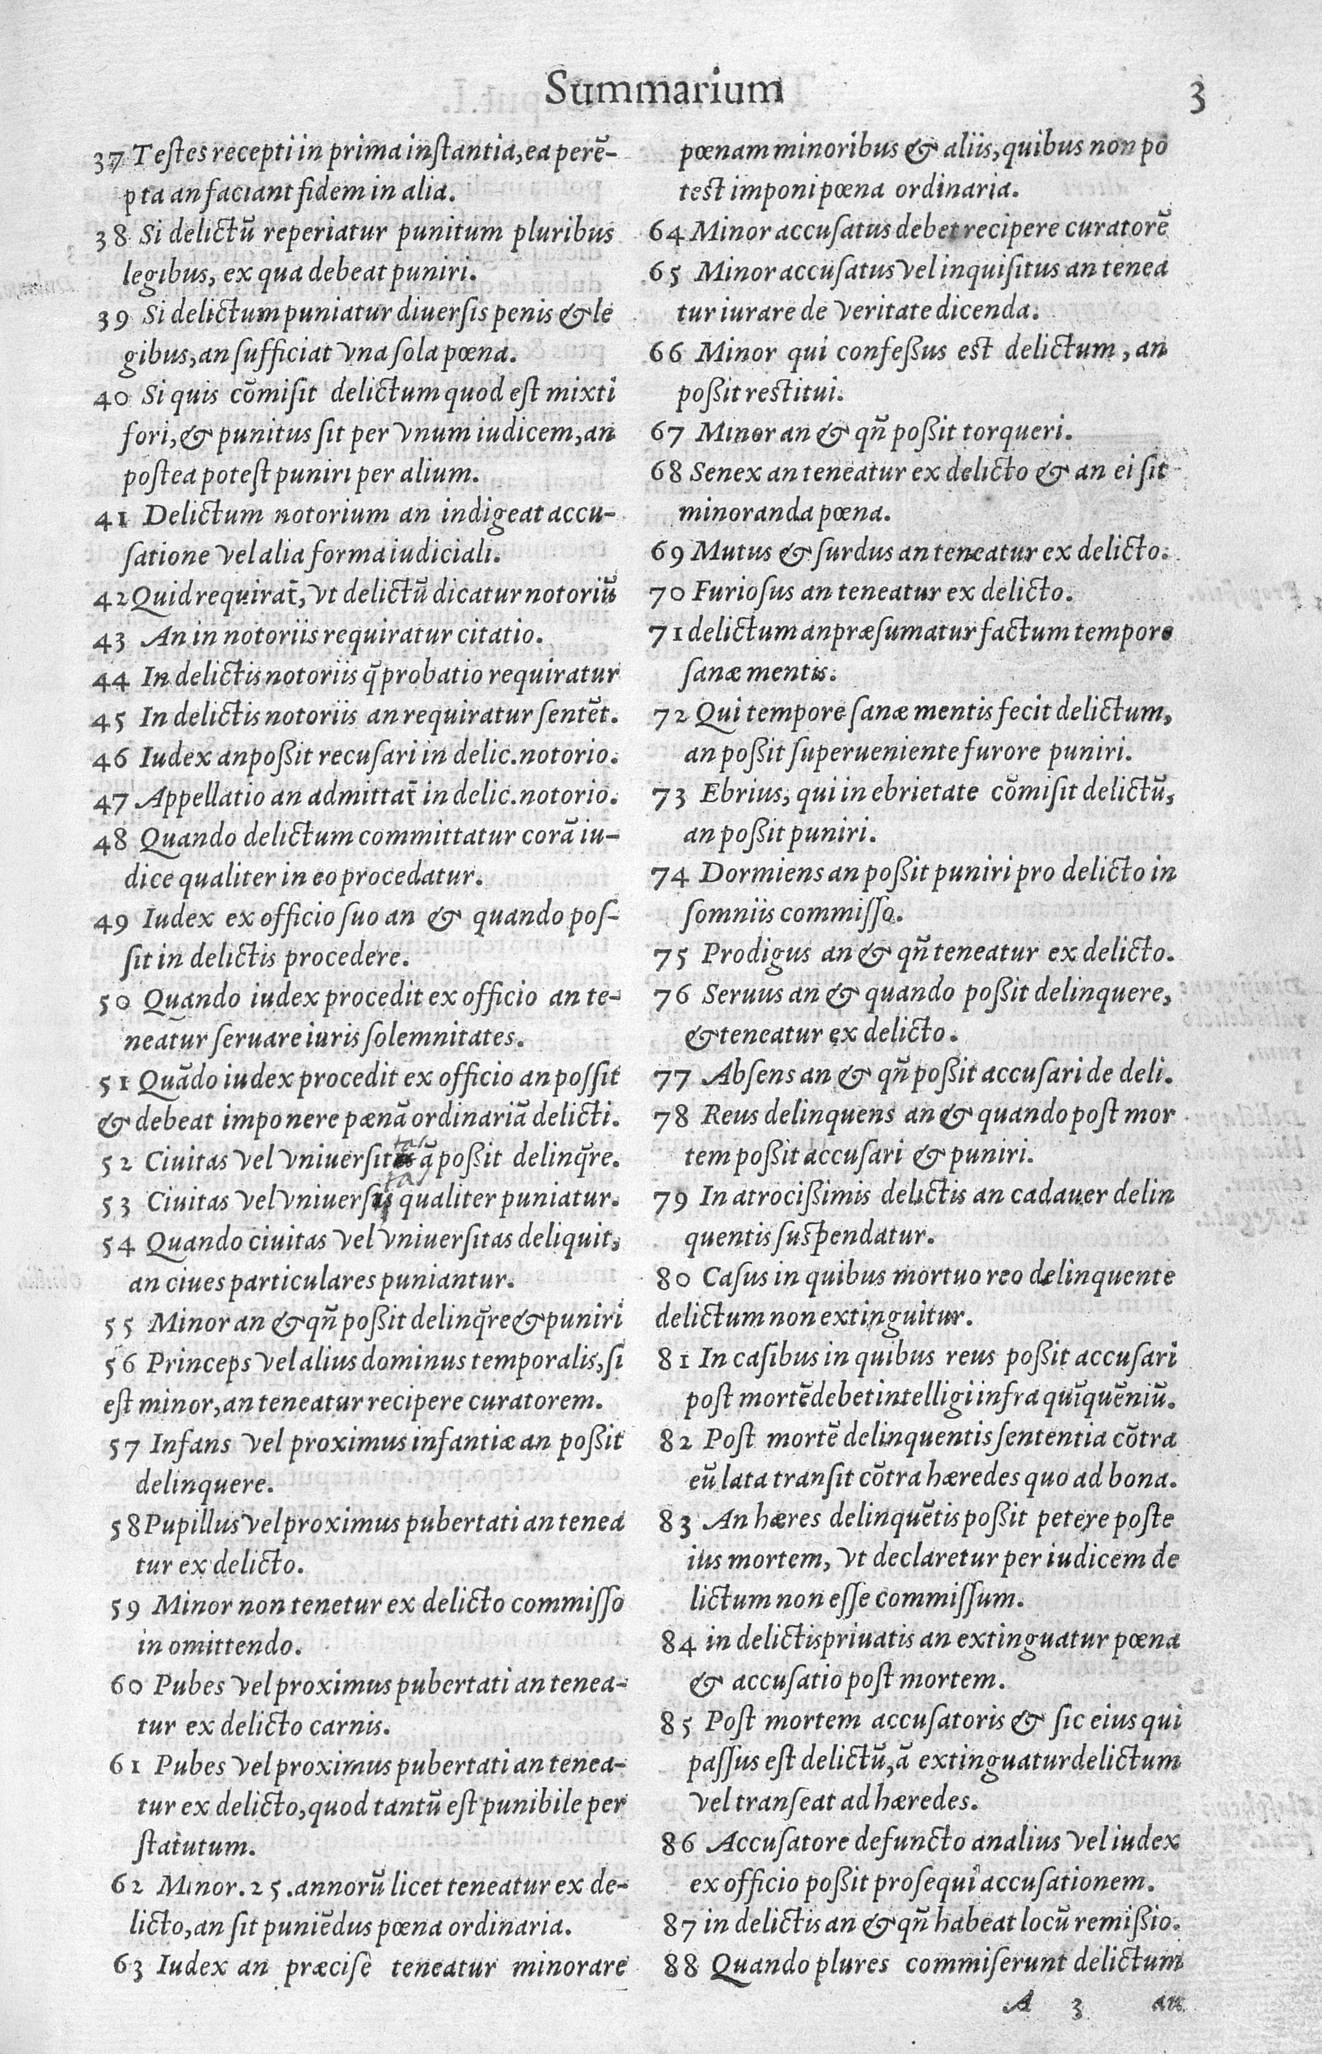 Summarium
3
37 Testes recepti in prima instantia, ea perē-
pta an faciant fidem in alia.
38 Si delictū reperiatur punitum pluribus
legibus, ex qua debeat puniri.
39 Si delictum puniatur diuersis penis & le
gibus, an sufficiat vna sola pœna.
40 Si quis cōmisit delictum quod est mixti
fori, & punitus sit per vnum iudicem, an
postea potest puniri per alium.
41 Delictum notorium an indigeat accu-
satione vel alia forma iudiciali.
42 Quid requirat̄, vt delictū dicatur notoriū
43 An in notoriis requiratur citatio.
44 In delictis notoriis q̄ probatio requiratur
45 In delictis notoriis an requiratur sentēt.
46 Iudex an poßit recusari in delic. notorio.
47 Appellatio an admittat̄ in delic. notorio.
48 Quando delictum committatur corā iu-
dice qualiter in eo procedatur.
49 Iudex ex officio suo an & quando pos-
sit in delictis procedere.
50 Quando iudex procedit ex officio an te-
neatur seruare iuris solemnitates.
51 Quādo iudex procedit ex officio an possit
& debeat imponere pænā ordinariā delicti.
52 Ciuitas vel vniversitas ā poßit delinq̄re.
53 Ciuitas vel vniversitas qualiter puniatur.
54 Quando ciuitas vel vniuersitas deliquit,
an ciues particulares puniantur.
55 Minor an & qn̄ poßit delinq̄re & puniri
56 Princeps vel alius dominus temporalis, si
est minor, an teneatur recipere curatorem.
57 Infans vel proximus infantiæ an poßit
delinquere.
58 Pupillus vel proximus pubertati an tenea
tur ex delicto.
59 Minor non tenetur ex delicto commisso
in omittendo.
60 Pubes vel proximus pubertati an tenea-
tur ex delicto carnis.
61 Pubes vel proximus pubertati an tenea-
tur ex delicto, quod tantū est punibile per
statutum.
62 Minor. 25. annorū licet teneatur ex de-
licto, an sit puniēdus pœna ordinaria.
63 Iudex an præcise teneatur minorare
pœnam minoribus & aliis, quibus non po
test imponi pœna ordinaria.
64 Minor accusatus debet recipere curatorē
65 Minor accusatus vel inquisitus an tenea
tur iurare de veritate dicenda.
66 Minor qui confeßus est delictum, an
poßit restitui.
67 Minor an & qn̄ poßit torqueri.
68 Senex an teneatur ex delicto & an ei sit
minoranda pœna.
69 Mutus & surdus an teneatur ex delicto.
70 Furiosus an teneatur ex delicto.
71 delictum an præsumatur factum tempore
sanæ mentis.
72 Qui tempore sanæ mentis fecit delictum,
an poßit superueniente furore puniri.
73 Ebrius, qui in ebrietate cōmisit delictū,
an poßit puniri.
74 Dormiens an poßit puniri pro delicto in
somniis commisso.
75 Prodigus an & qn̄ teneatur ex delicto.
76 Seruus an & quando poßit delinquere,
& teneatur ex delicto.
77 Absens an & qn̄ poßit accusari de deli.
78 Reus delinquens an & quando post mor
tem poßit accusari & puniri.
79 In atrocißimis delictis an cadauer delin
quentis suspendatur.
80 Casus in quibus mortuo reo delinquente
delictum non extinguitur.
81 In casibus in quibus reus poßit accusari
post mortē debet intelligi infra quīquēniū.
82 Post mortē delinquentis sententia cōtra
eū lata transit cōtra hæredes quo ad bona.
83 An hæres delinquētis poßit petere poste
ius mortem, vt declaretur per iudicem de
lictum non esse commissum.
84 in delictis priuatis an extinguatur pœna
& accusatio post mortem.
85 Post mortem accusatoris & sic eius qui
passus est delictū, ā extinguatur delictum
vel transeat ad hæredes.
86 Accusatore defuncto an alius vel iudex
ex officio poßit prosequi accusationem.
87 in delictis an & qn̄ habeat locū remißio.
88 Quando plures commiserunt delictum
A 3 an